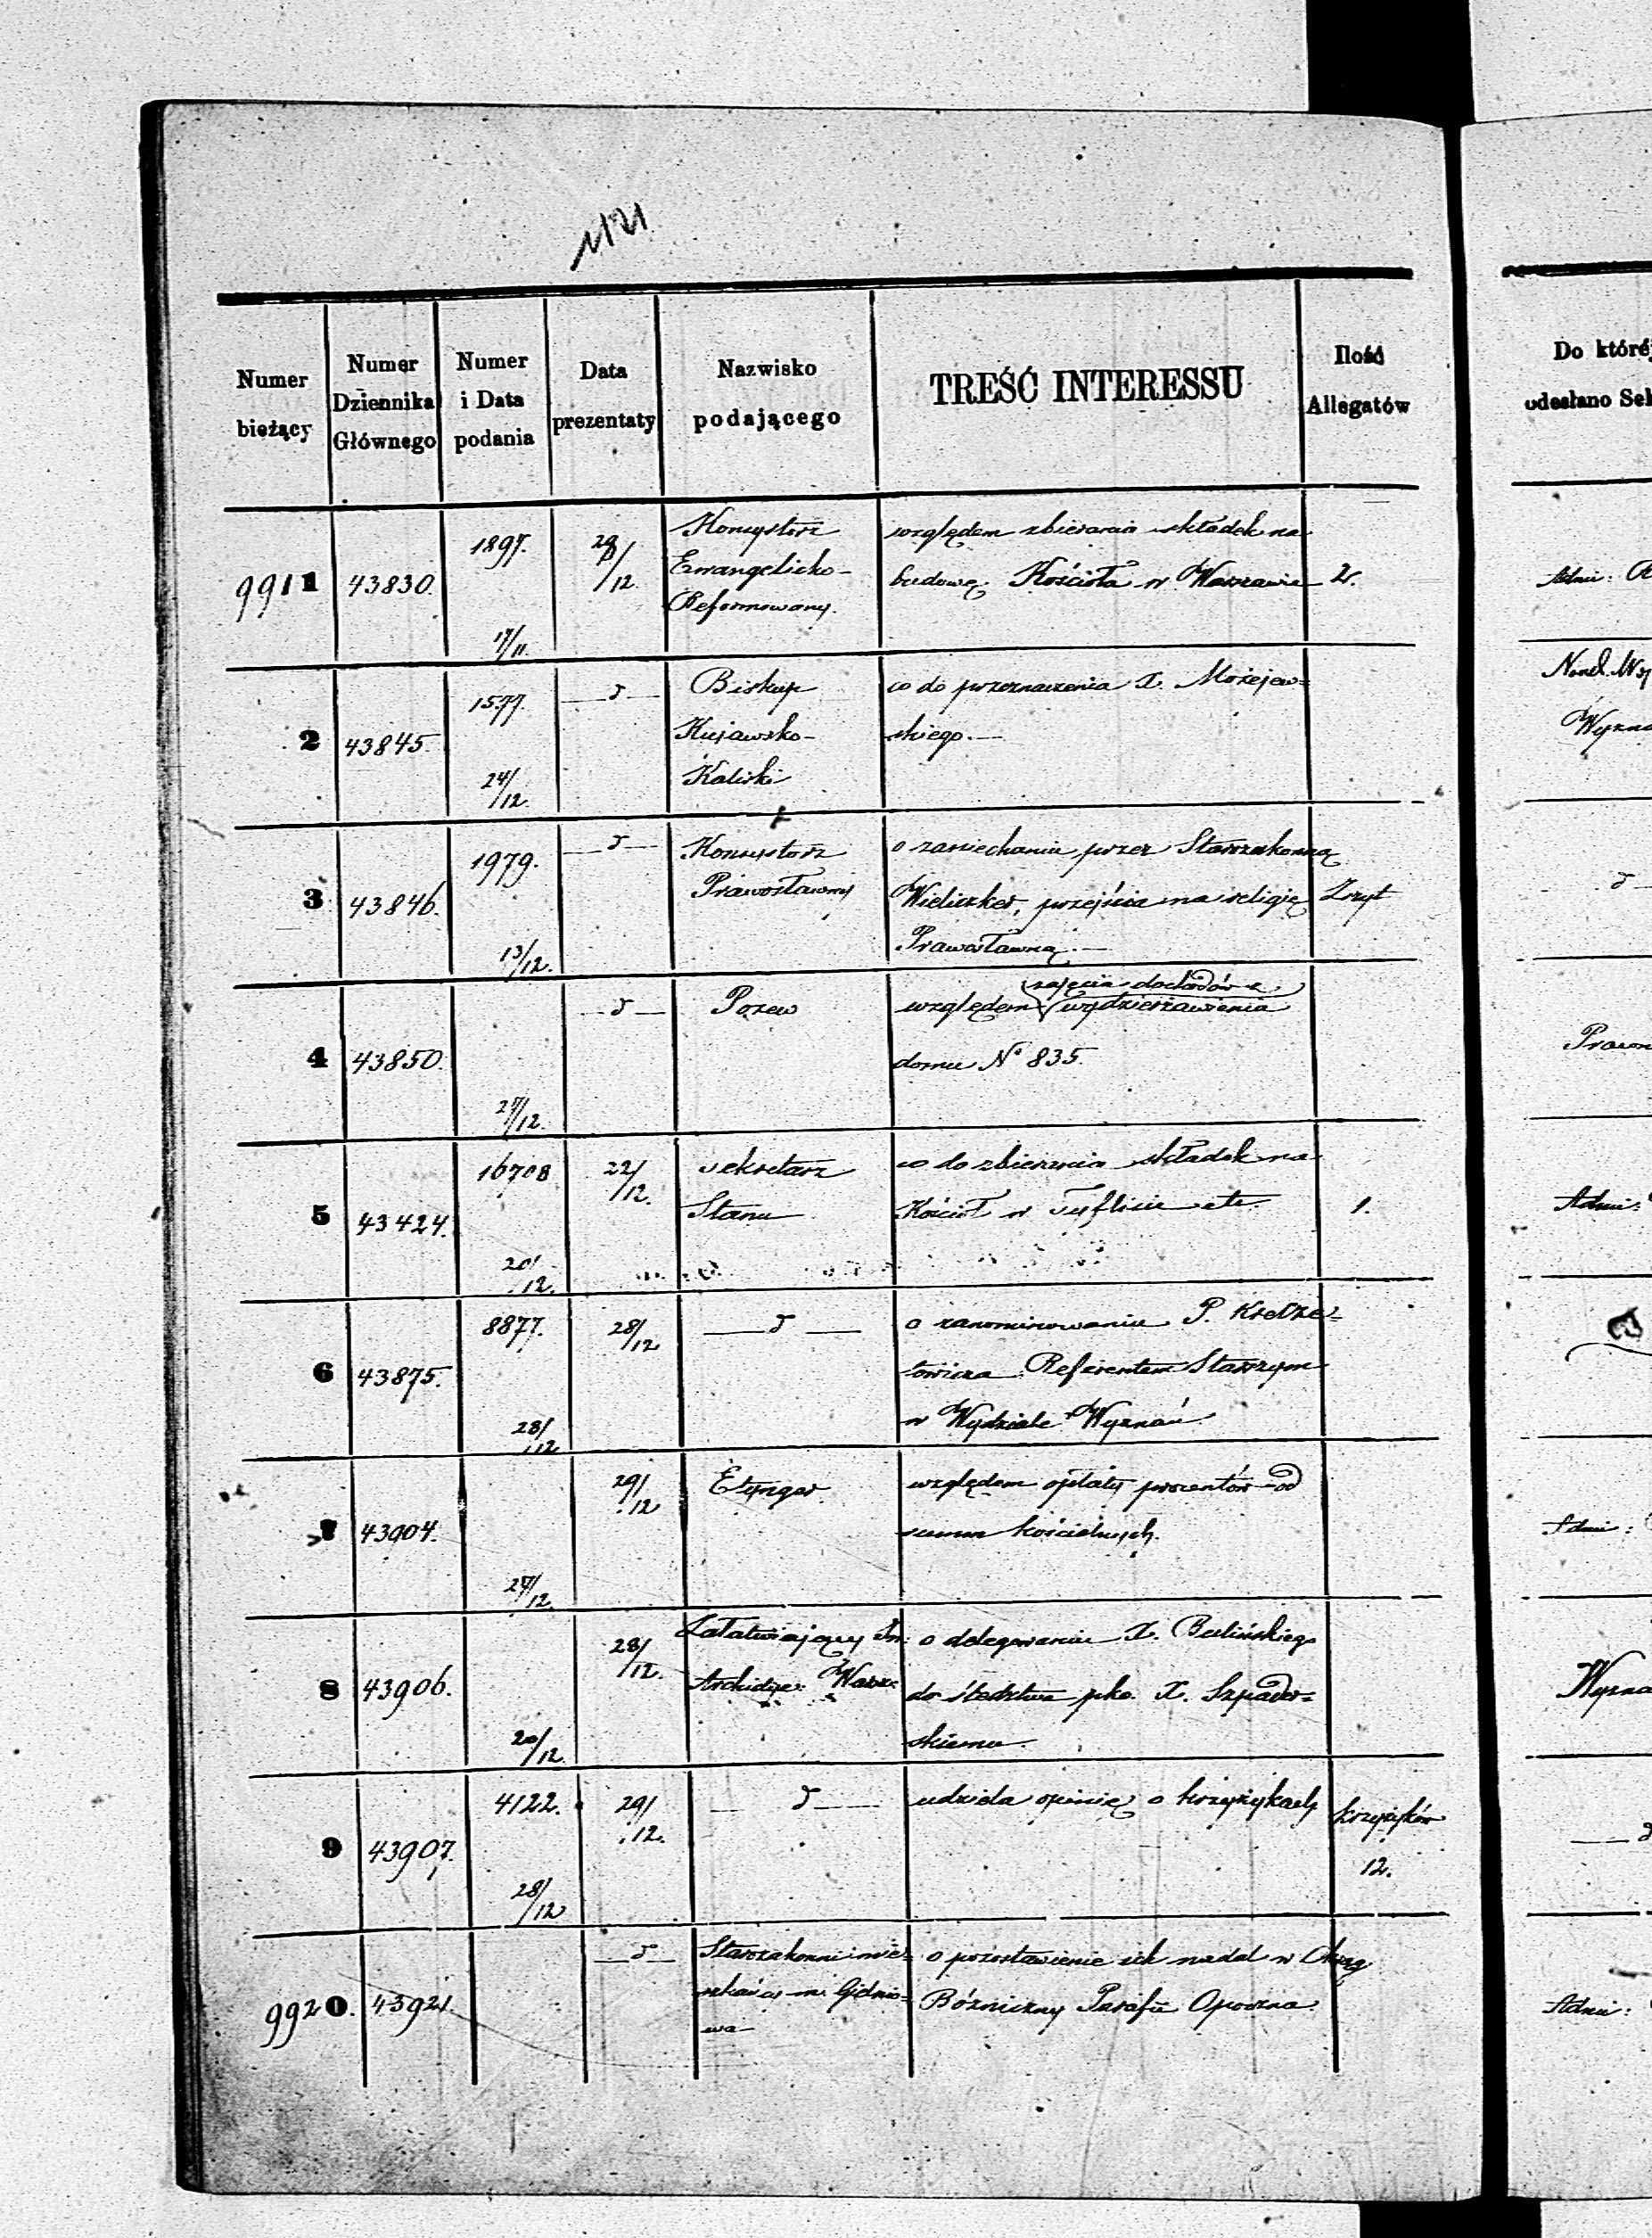 Numer bieżący
Numer Dziennika Głównego
Numer i Data podania
Data prezentaty
Nazwisko podającego
TREŚĆ INTERESSU
Ilość Allegatów
Do któréj
odesłano Se
9911 43830. 1897. 17/11. 29/12.
Konsystorz
Ewangelicko-
Reformowany.
względem zbierania składek na
budowę Kościoła w Warszawie 2.
Admi:
2 43845. 1577. 24/12. — d —
Biskup
Kujawsko-
Kaliski
co do przeznaczenia X. Możejew=
skiego. —
Wyzna
3 43846. 1979. 13/12. — d —
Konsystorz
Prawosławny
o zaniechaniu przez Starozakonną
Wieliczker, przejścia na religię
Prawosławną. —
Zszyt
d
4 43850. 27/12. — d —
Pozew
zajęcia dochodów z
względem wydzierżawienia
domu No 835.
Prawn
5 43424. 16708 20/12. 22/12.
Sekretarz
Stanu
co do zbierania składek na
Kościół w Tyflisie etc. 1.
Admi:
6 43875. 8877. 28/12. 28/12 — d —
o zanominowaniu P.
Referentem Starszym
w Wydziale Wyznań.
7 43904. 27/12. 29/12
Etynger.
względem opłaty procentów od
summ kościelnych.
Admi:
8 43906. 20/12. 28/12.
Załatwiający In:
Archidye: Warsz:
o delegowaniu X. Bulińskiego
do śledztwa pko. X. Szpader=
skiemu.
Wyzna
9 43907. 4122. 28/12 29/12. — d —
udziela opinię o krzyżykach
krzyżyków
12.
9920. 43921. — d —
Starozakonni mie=
szkańcy m. Gielnio=
wa
o pozostawienie ich nadal w Okręg
Bóżniczny Parafii Opoczna.
Admi: